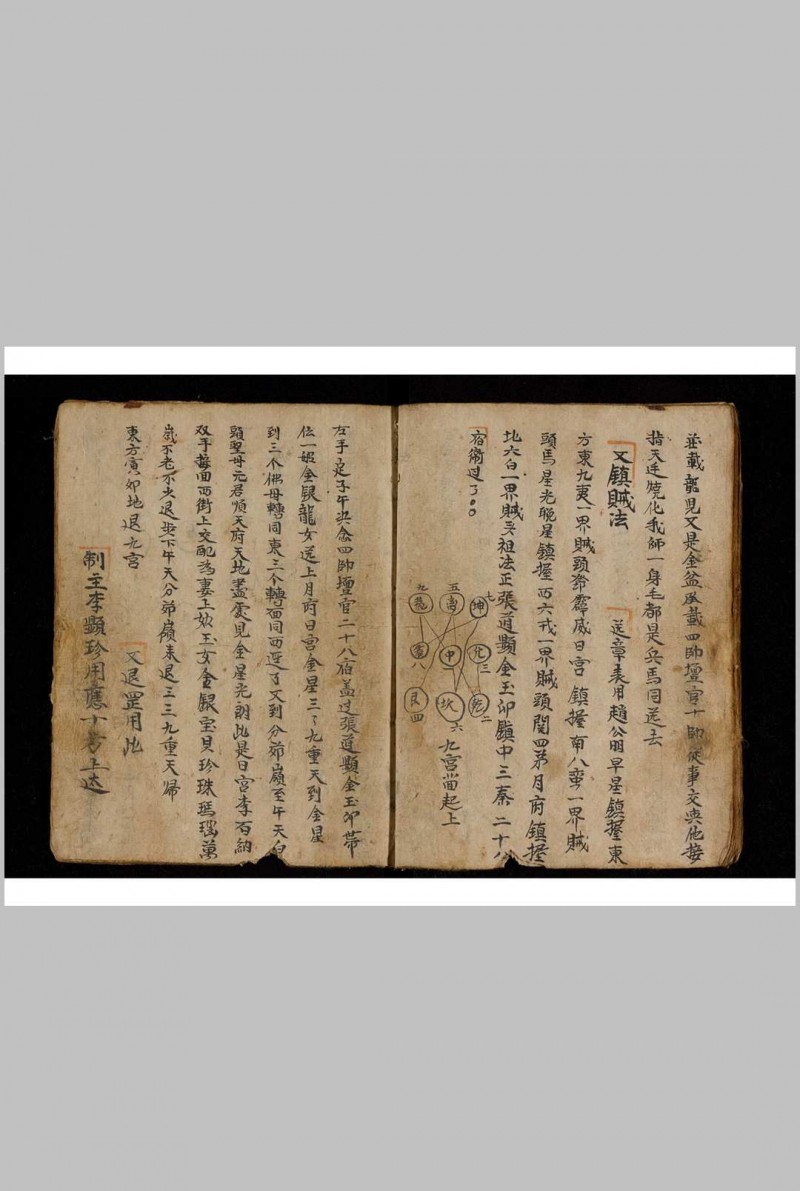 並載龍児又是金盆承載四帥壇官十帥从事交與他接
指天廷燒化我師一身毛都是兵馬同送去
又鎮賊法 送章表用趙公明早星鎮握東
方東九夷一界賊頭帝霹威日宮鎮握南八蛮一界賊
頭馬星光晚星鎮握西六戎一界賊頭関四弟月府鎮握
北六白一界賊头祖法正張道顯金玉印鎮中三秦二十八
宿衛过了。。
九 五 七
龍 离 坤
震 中 兑
八 三
艮 坎 乾
四 六 二
九宮當起上
左手定子午訣念四帥壇官二十八宿盖过張道顯金玉印帶
伝一姐金銀龍女送上月府日宮金星三了九重天到金星
到三个佛母轉同東三个轉面同西送了又到分茆嶺至午天白
頭聖母元君順天府天地盡處見金星光朗此是日宮李石納
双手掩面西街上交配為妻上姑玉女金銀宝貝珍珠瑪瑙萬
歲不老不少退步下午天分茆嶺来退三三九重天歸
東方寅卯地退九宮 又退罡用此
制主李顯珍用應十方上达